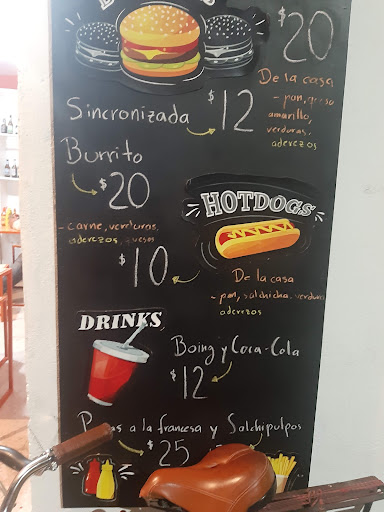 $20
De la casa
- pan, queso
amarillo,
verduras,
aderezos
Sincronizada $12
Burrito
$20
- carne, verduras,
aderezos, quesos
HOTDOGS
$10
De la casa
- pan, salchicha, verduras
aderezos
DRINKS
Boing y Coca-Cola
$12
a la francesa y Salchipulpos
$25